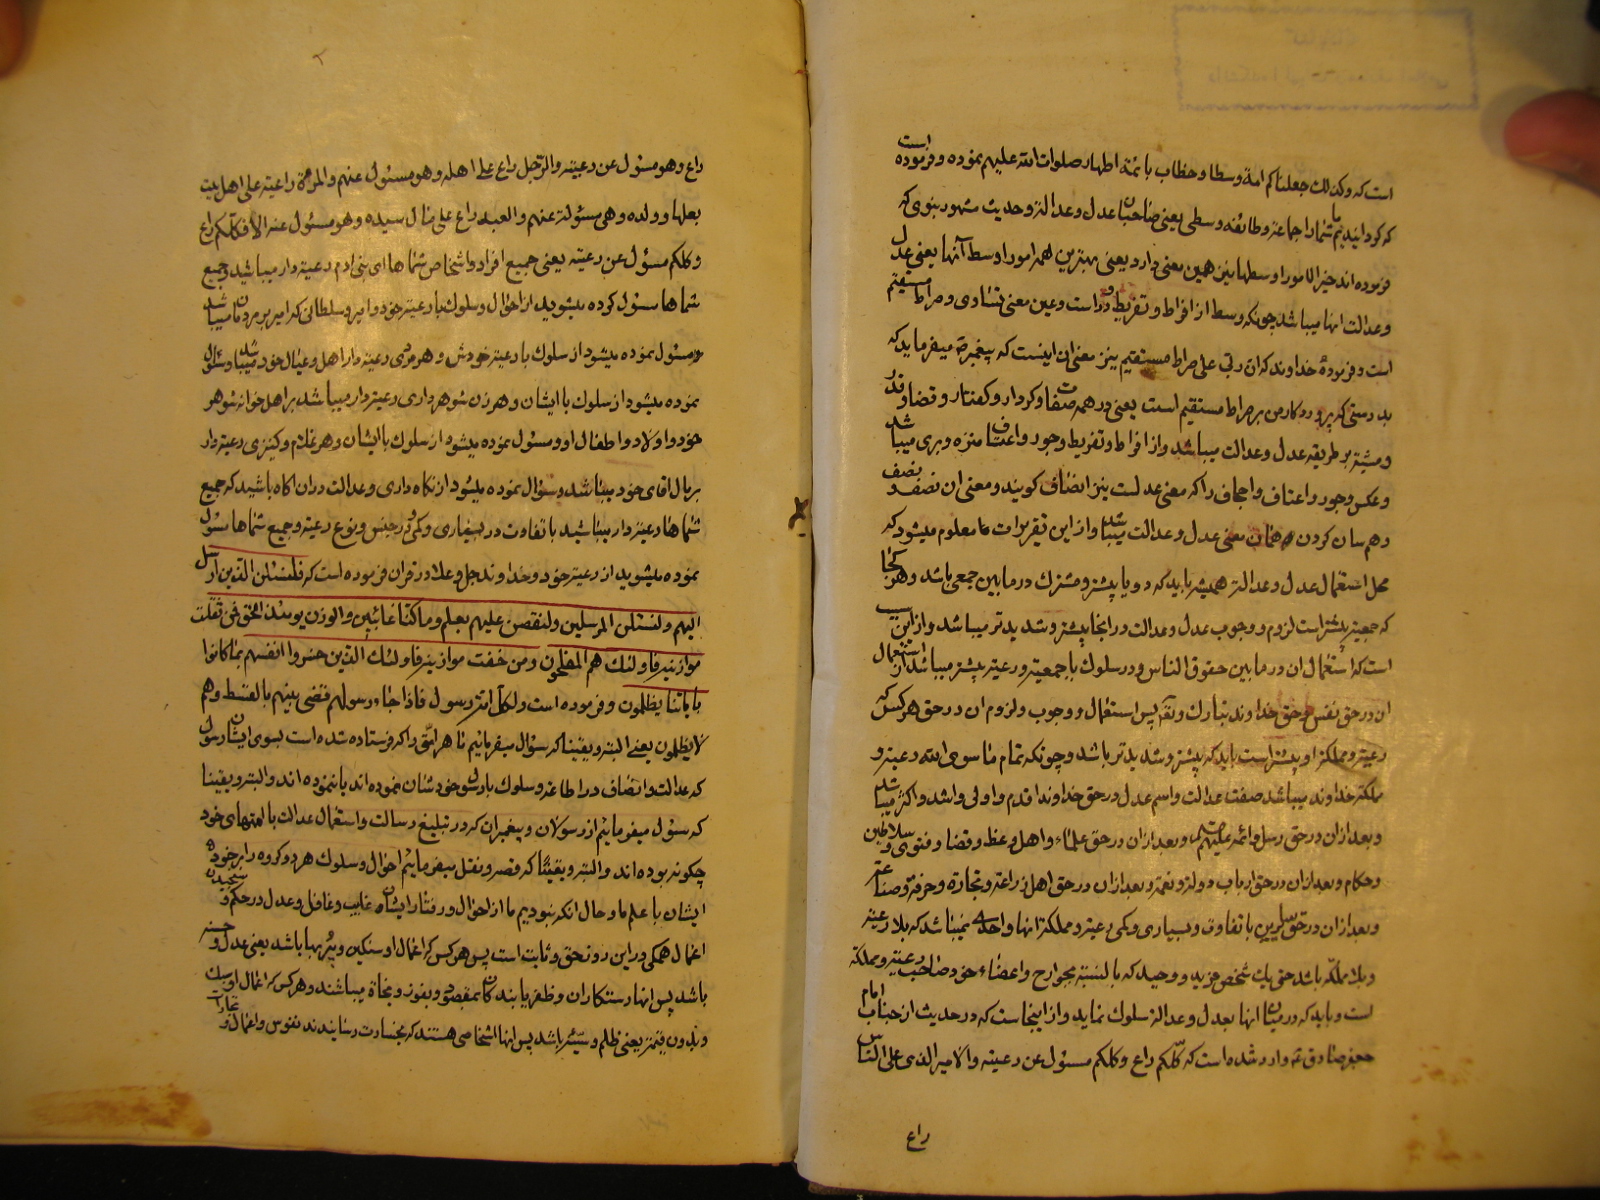 است که وکذلک جعلناکم امة وسطا وخطاب بائمه اطهار صلوات الله علیهم نموده وفرموده است
که گردانیدیم ما شما را جماعة وطائفه وسطی یعنی صاحبان عدل وعدالة وحدیث مشهور نبوی که
فرموده اند خیر الامور اوسطها نیز همین معنی دارد یعنی بهترین همه امور اوسط آنها یعنی عدل
وعدالت انها میباشد چونکه وسط از افراط وتفریط دور است وعین معنی تساوی وصراط مستقیم
است وفرمودهٔ خداوند که ان ربی علی صراط مستقیم نیز معنی ان اینست که پیغمبر ص میفرماید که
بدرستی که پروردکار من بر صراط مستقیم است یعنی در همه صفات وکردار وکفتار وقضا وقدر
ومشیة بر طریقه عدل وعدالت میباشد واز افراط وتفریط وجور واعتساف منزه وبری میباشد
وعکس وجور واعتساف واجحاف را که معنی عدلست نیز انصاف کویند ومعنی ان نصف نصف
وهمسان کردن همان معنی عدل وعدالت میباشد واز این تقریرات ما معلوم میشود که
محل استعمال عدل وعدالة همیشه باید که دو یا بیشتر ومشترک در مابین جمعی باشد وهر کجا
که جمعیة بیشتر است لزوم ووجوب عدل وعدالت در انجا بیشتر وشدیدتر میباشد واز این سبب
است که استعمال ان در مابین حقوق الناس ودر سلوک با جمعیة ورعیة بیشتر میباشد از استعمال
ان در حق نفس وحق خداوند تبارک وتعالی پس استعمال ووجوب ولزوم ان در حق هر کس که
رعیة ومملکة او بیشتر است باید که بیشتر وشدیدتر باشد وچونکه تمام ما سوی الله رعیة و
مملکة خداوند میباشد صفت عدالت واسم عدل در حق خداوند اقدم واولی واشد واکثر میباشد
وبعد ازان در حق رسل وائمه علیهم السلام وبعد ازان در حق علماء واهل وعظ وقضا وفتوی وسلاطین
وحکام وبعد ازان در حق ارباب دولة ونعمة وبعد ازان در حق اهل زراعة وتجارة وحرفة وصناعة
وبعد ازان در حق سایرین با تفاوت وبسیاری وکمی رعیة ومملکة انها واحدی نمیباشد که بلا رعیة
وبلا مملکة باشد حتی یک شخص فرید ووحید که بالنسبة بجوارح واعضاء خود صاحب رعیة ومملکة
است وباید که در میان انها بعدل وعدالة سلوک نماید واز اینجاست که در حدیث از جناب امام
جعفر صادق ع وارد شده است که کلکم راع وکلکم مسئول عن رعیته والامیر الذی علی الناس
راع
راع وهو مسئول عن رعیته والرجل راع علی اهله وهو مسئول عنهم والمرءة راعیة علی اهل بیت
بعلها وولده وهی مسئولة عنهم والعبد راع علی مال سیده وهو مسئول عنه الا فکلکم راع
وکلکم مسئول عن رعیته یعنی جمیع افراد واشخاص شماها ای بنی ادم رعیة دار میباشید وجمیع
شماها مسئول کرده میشوید از احوال وسلوک با رعیة خود وامیر وسلطانی که امیر بر مردمان میباشد
مسئول نموده میشود از سلوک با رعیة خودش وهر مردی رعیة دار اهل وعیال خود میباشد ومسئول
نموده میشود از سلوک با ایشان وهر زن شوهرداری رعیة دار میباشد بر اهل خوانه شوهر
خود واولاد واطفال او ومسئول نموده میشود از سلوک با ایشان وهر غلام وکنیزی رعیة دار
بر مال اقای خود میباشد وسؤال نموده میشود از نکاه داری وعدالت دران اکاه باشید که جمیع
شماها رعیة دار میباشید با تفاوت در بسیاری وکمی ودر جنس ونوع رعیة وجمیع شماها مسئول
نموده میشوید از رعیة خود وخداوند جل وعلا در قران فرموده است که فلنسئلن الذین ارسل
الیهم ولنسئلن المرسلین ولنقصن علیهم بعلم وما کنا غائبین والوزن یومئذ الحق فمن ثقلت
موازینه فاولئک هم المفلحون ومن خفت موازینه فاولئک الذین خسروا انفسهم بما کانوا
بایاتنا یظلمون وفرموده است ولکل امة رسول فاذا جاء رسولهم قضی بینهم بالقسط وهم
لا یظلمون یعنی البته ویقینا که سؤال میفرمائیم ما هر امتی را که فرستاده شده است بسوی ایشان رسول
که عدالت وانصاف در اطاعة وسلوک با رسول خودشان نموده اند یا ننموده اند والبته ویقینا
که مسئول میفرمائیم از رسولان وپیغمبران که در تبلیغ رسالت واستعمال عدالت با امتهای خود
چکونه بوده اند والبته ویقینا که قصه ونقل میفرمائیم احوال وسلوک هر دو کروه را بر خود
ایشان با علم ما وحال انکه نبودیم ما از احوال ورفتار ایشان غایب وغافل وعدل در حکم وسنجیدن
اعمال همکی در این روز حق وثابت است پس هر کس که اعمال او سنکین وپربها باشد یعنی عدل وحسنه
باشد پس انها رستکاران وظفریابندکان بمقصود وبفوز ونجاة میباشند وهر کس که اعمال او سبک
وبدون قیمة یعنی ظلم وسیئه باشد پس انها اشخاصی هستند که بخسارت رسانیدند نفوس واعمال و